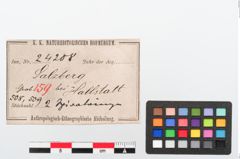 K. K. NATURHISTORISCHES HOFMUSEUM.
Inv. Nr. 24208 Jahr der Acq.
Salzberg
Grab 759 bei Hallstatt
508, 509
Stückzahl 2
Anthropologisch-Ethnographische Abtheilung.